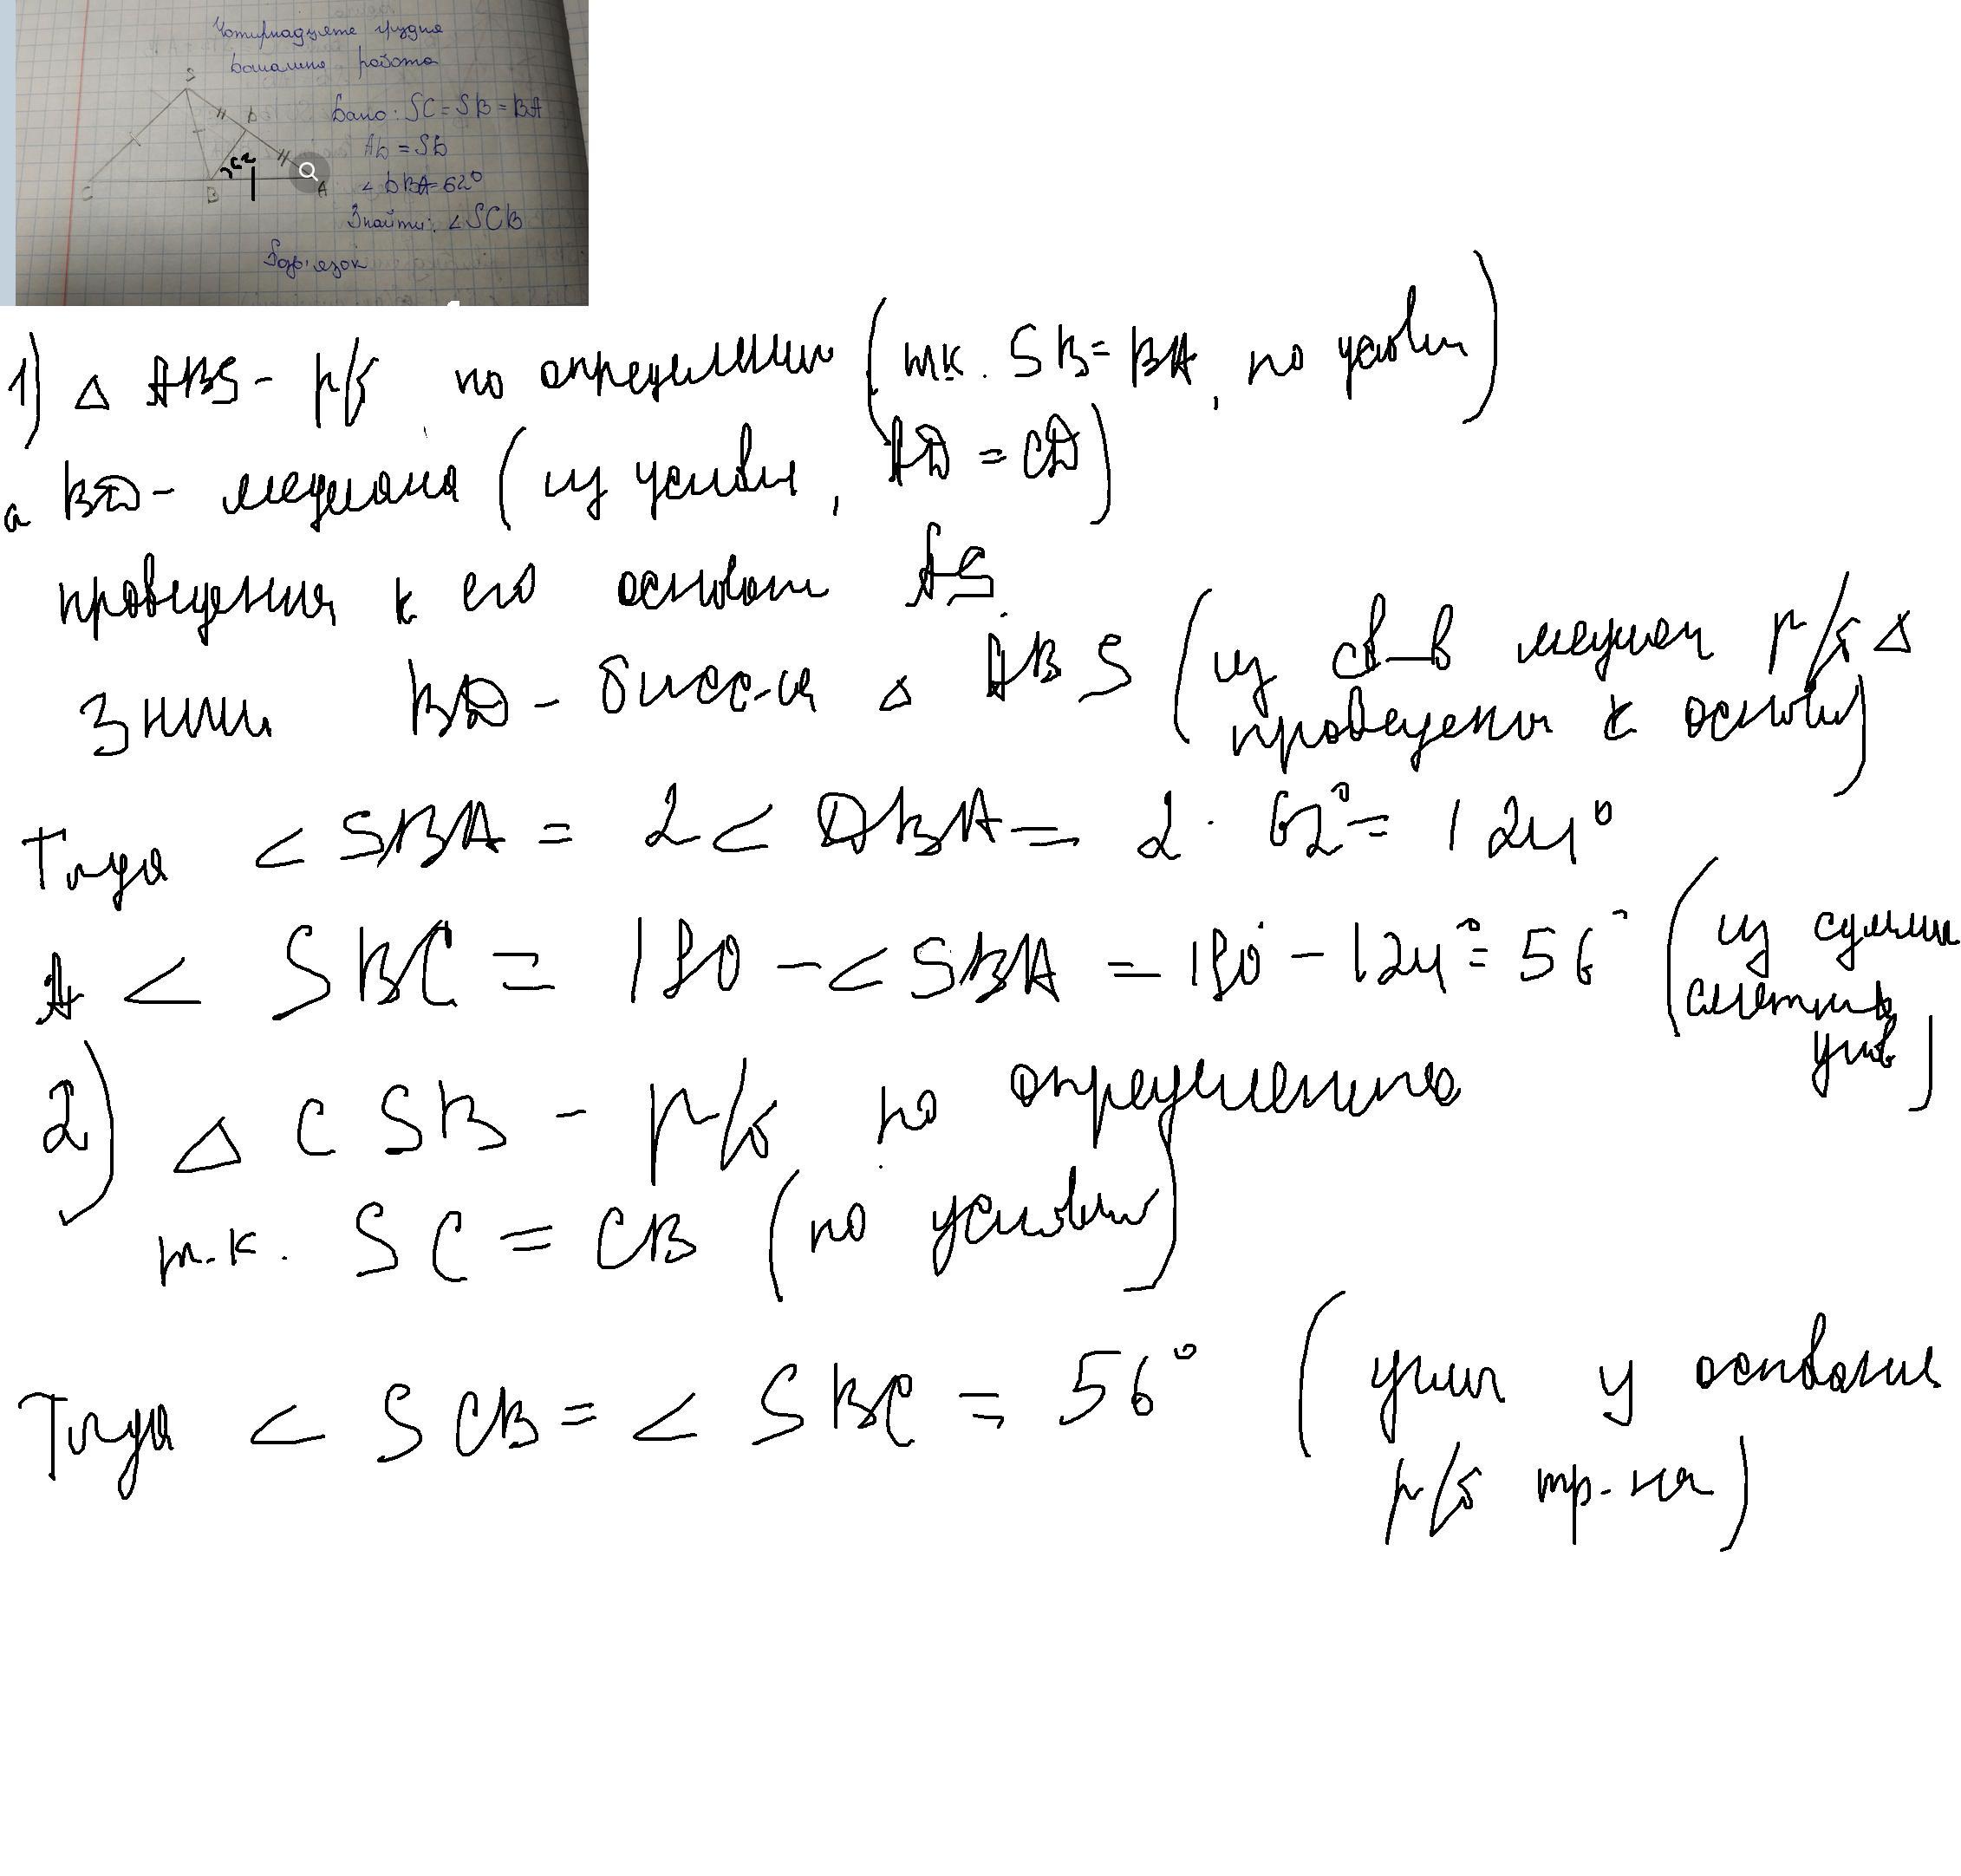 Чотирнадцяте грудня
Домашня робота
S
D
C
B
A
62
Дано: SC = SB = BA
AD = SD
∠DBA = 62°
Знайти: ∠SCB
Розв'язок
1) △ ABS - р/б по определению (т.к. SB = BA, по условию)
а BD - медиана (из условия, AD = CD)
проведенная к его основанию AS.
Значит BD - бисс-са △ ABS (из св-в медианы р/б △
проведены к основанию)
Тогда < SBA = 2 < DBA = 2 · 62° = 124°
А < SBC = 180 - < SBA = 180° - 124° = 56° (из суммы
смежных
углов)
2) △ CSB - р/б по определению
т.к. SC = CB (по условию)
Тогда < SCB = < SBC = 56° (углы у основания
р/б тр-ка)